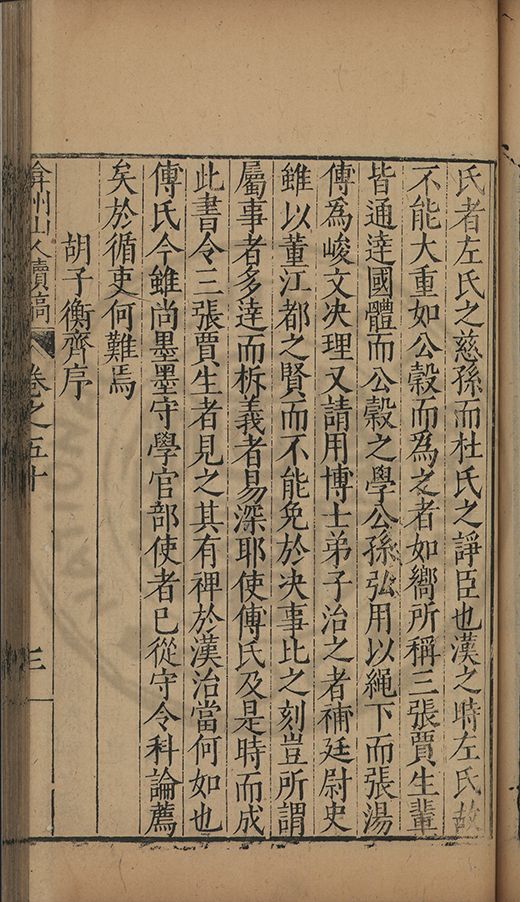 氏者左氏之慈孫而杜氏之諍臣也漢之時左氏故
不能大重如公穀而為之者如嚮所稱三張賈生輩
皆通達國體而公穀之學公孫弘用以繩下而張湯
傅為峻文決理又請用博士弟子治之者補廷尉史
雖以董江都之賢而不能免於決事比之刻豈所謂
屬事者多達而析義者易深耶使傅氏及是時而成
此書令三張賈生者見之其有裨於漢治當何如也
傅氏今雖尚墨墨守學官部使者已從守令科論薦
矣於循吏何難焉
胡子衡齊序
弇州山人續稿 卷之五十 三